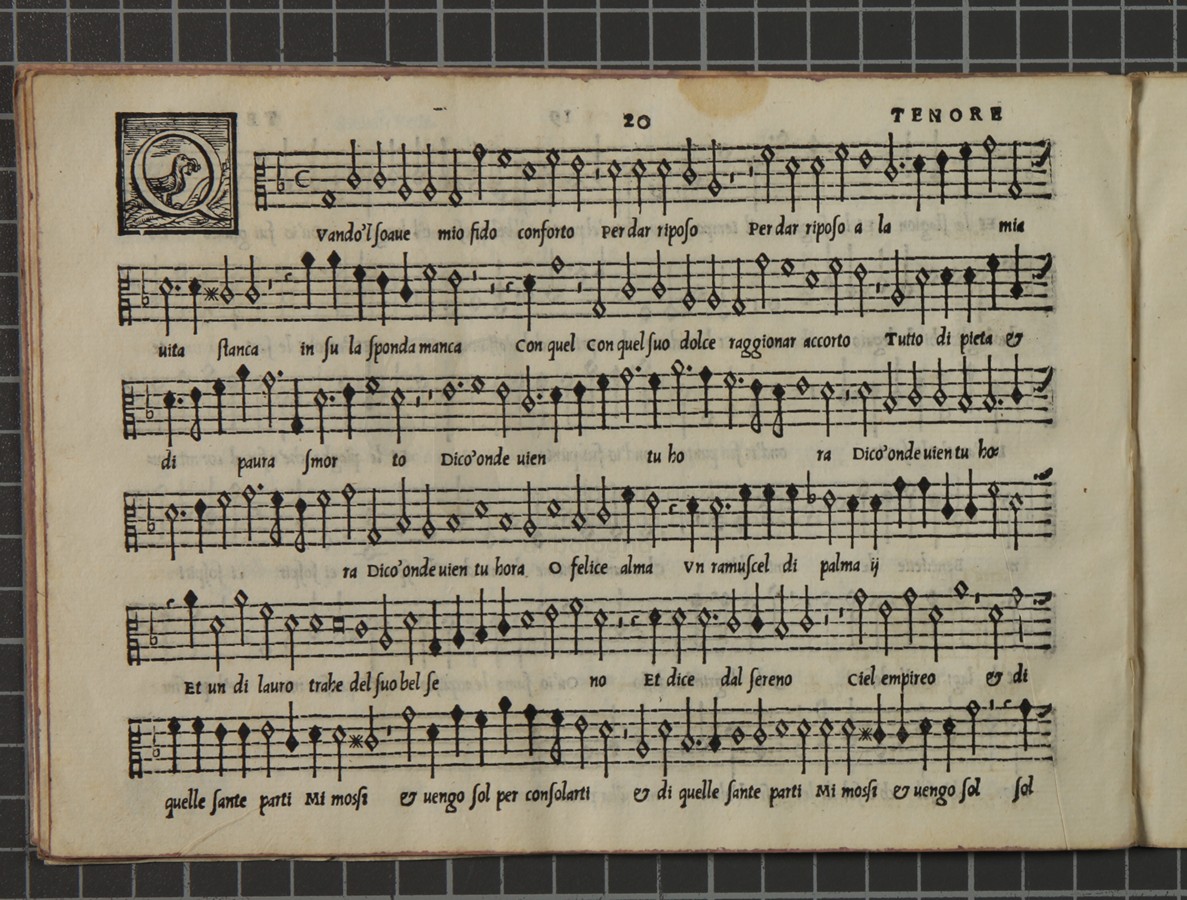 20 TENORE
QVando'l soaue mio fido conforto Per dar riposo Per dar riposo a la mia
uita stanca in su la sponda manca Con quel Con quel suo dolce raggionar accorto Tutto di pieta &
di paura smor to Dico'onde uien tu ho ra Dico'onde uien tu ho
ra Dico'onde uien tu hora O felice alma Vn ramuscel di palma ij
Et un di lauro trahe del suo bel se no Et dice dal sereno Ciel empireo & di
quelle sante parti Mi mossi & uengo sol per consolarti & di quelle sante parti Mi mossi & uengo sol sol